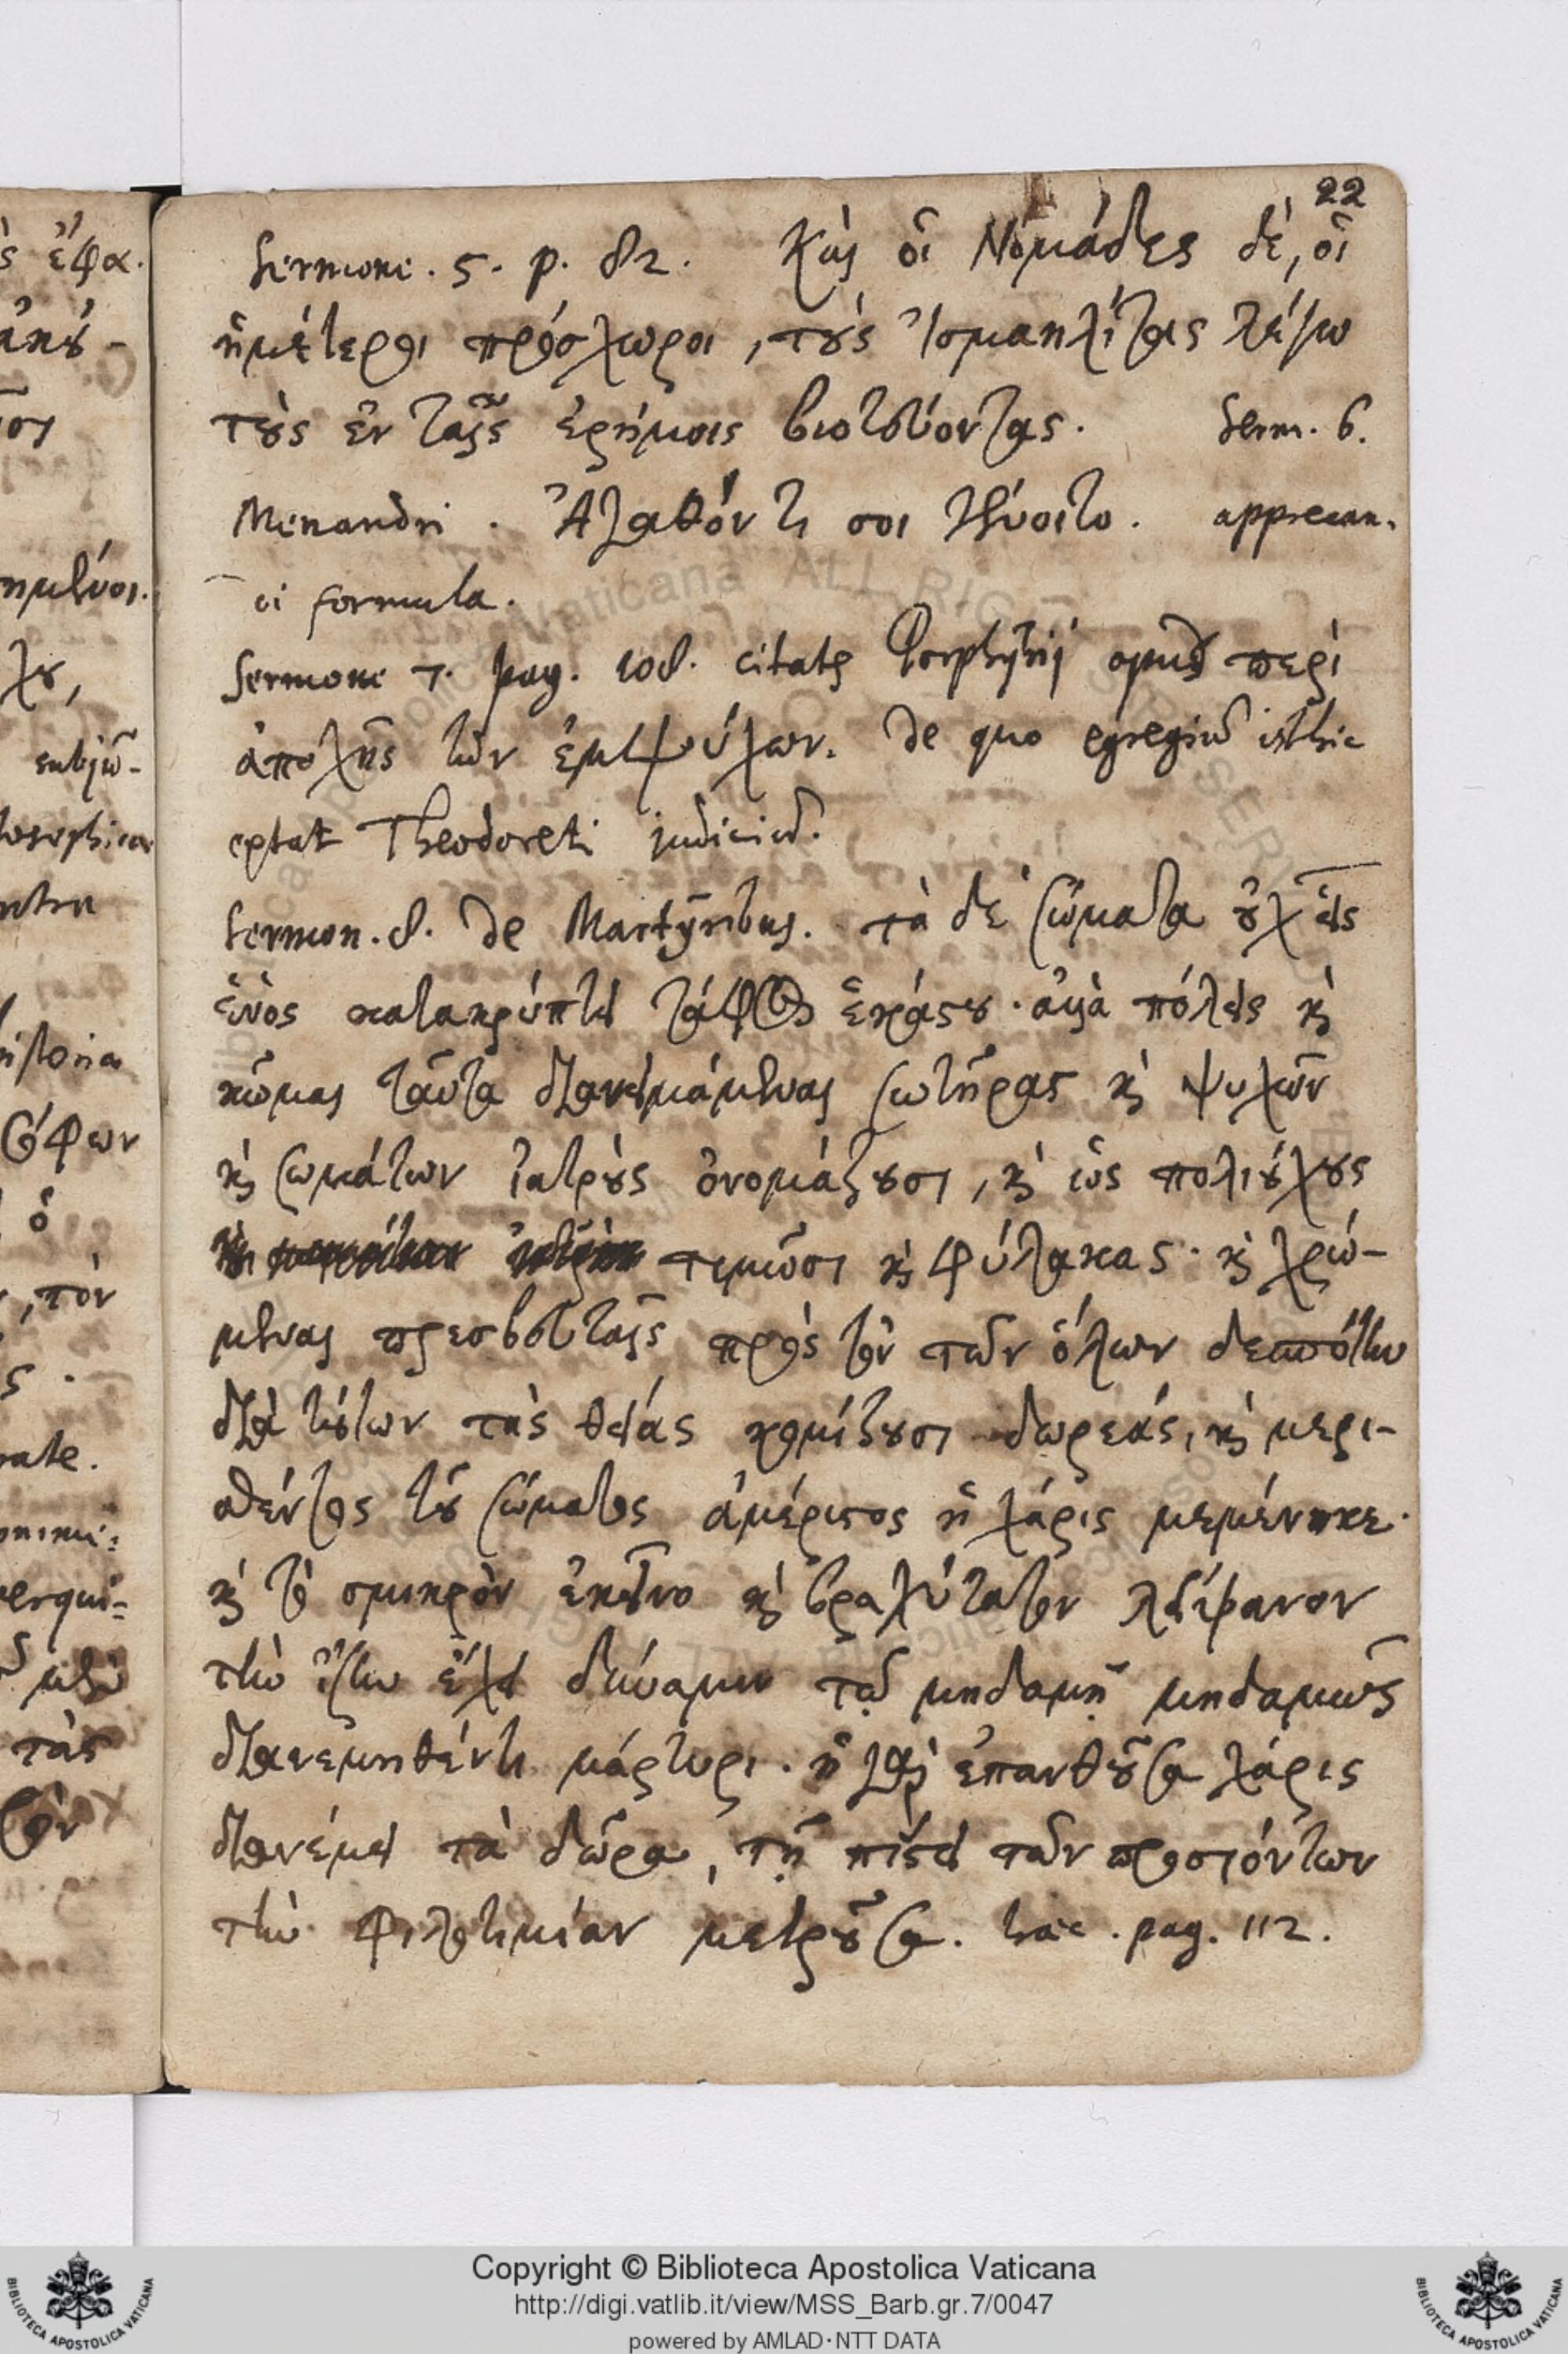 22
Sermone. 5. p. 82. Καὶ οἱ Νομάδες δὲ, οἱ
ἡμέτεροι πρόσχωροι, τοὺς Ἰσμαηλίτας λέγω
τοὺς ἐν ταῖς ἐρήμοις βιοτεύοντας. Serm. 6.
Menandri. Ἀγαθόν τι σοι γένοιτο. apprecan-
di formula.
Sermone 7. pag. 108. citatur Porphyrij opus περὶ
ἀποχῆς τῶν ἐμψύχων. de quo egregium isthic
extat Theodoreti judicium.
Sermon. 8. de Martyribus. τὰ δὲ σώματα οὐχ εἷς
ἑνὸς κατακρύπτει τάφος ἑκάστου. ἀλλὰ πόλεις καὶ
κῶμαι ταῦτα διανειμάμεναι σωτῆρας καὶ ψυχῶν
καὶ σωμάτων ἰατροὺς ὀνομάζουσι, καὶ ὡς πολιούχους
τιμῶσι καὶ φύλακας. καὶ χρώ-
μεναι πρεσβευταῖς πρὸς τὸν τῶν ὅλων δεσπότην
διὰ τούτων τὰς θείας κομίζουσι δωρεάς, καὶ μερι-
σθέντος τοῦ σώματος ἀμέριστος ἡ χάρις μεμένηκε.
καὶ τὸ σμικρὸν ἐκεῖνο καὶ βραχύτατον λείψανον
τὴν ἴσην ἔχει δύναμιν τῷ μηδαμῆ μηδαμῶς
διανεμηθέντι μάρτυρι. ἡ γὰρ ἐπανθοῦσα χάρις
διανέμει τὰ δῶρα, τῇ πίστει τῶν προσιόντων
τὴν φιλοτιμίαν μετροῦσα. haec. pag. 112.
ς ἔφα.
subjun-
losophica
historia
ὁ
, τὸν
τὰς
Copyright © Biblioteca Apostolica Vaticana
http://digi.vatlib.it/view/MSS_Barb.gr.7/0047
powered by AMLAD·NTT DATA
BIBLIOTECA APOSTOLICA VATICANA
BIBLIOTECA APOSTOLICA VATICANA